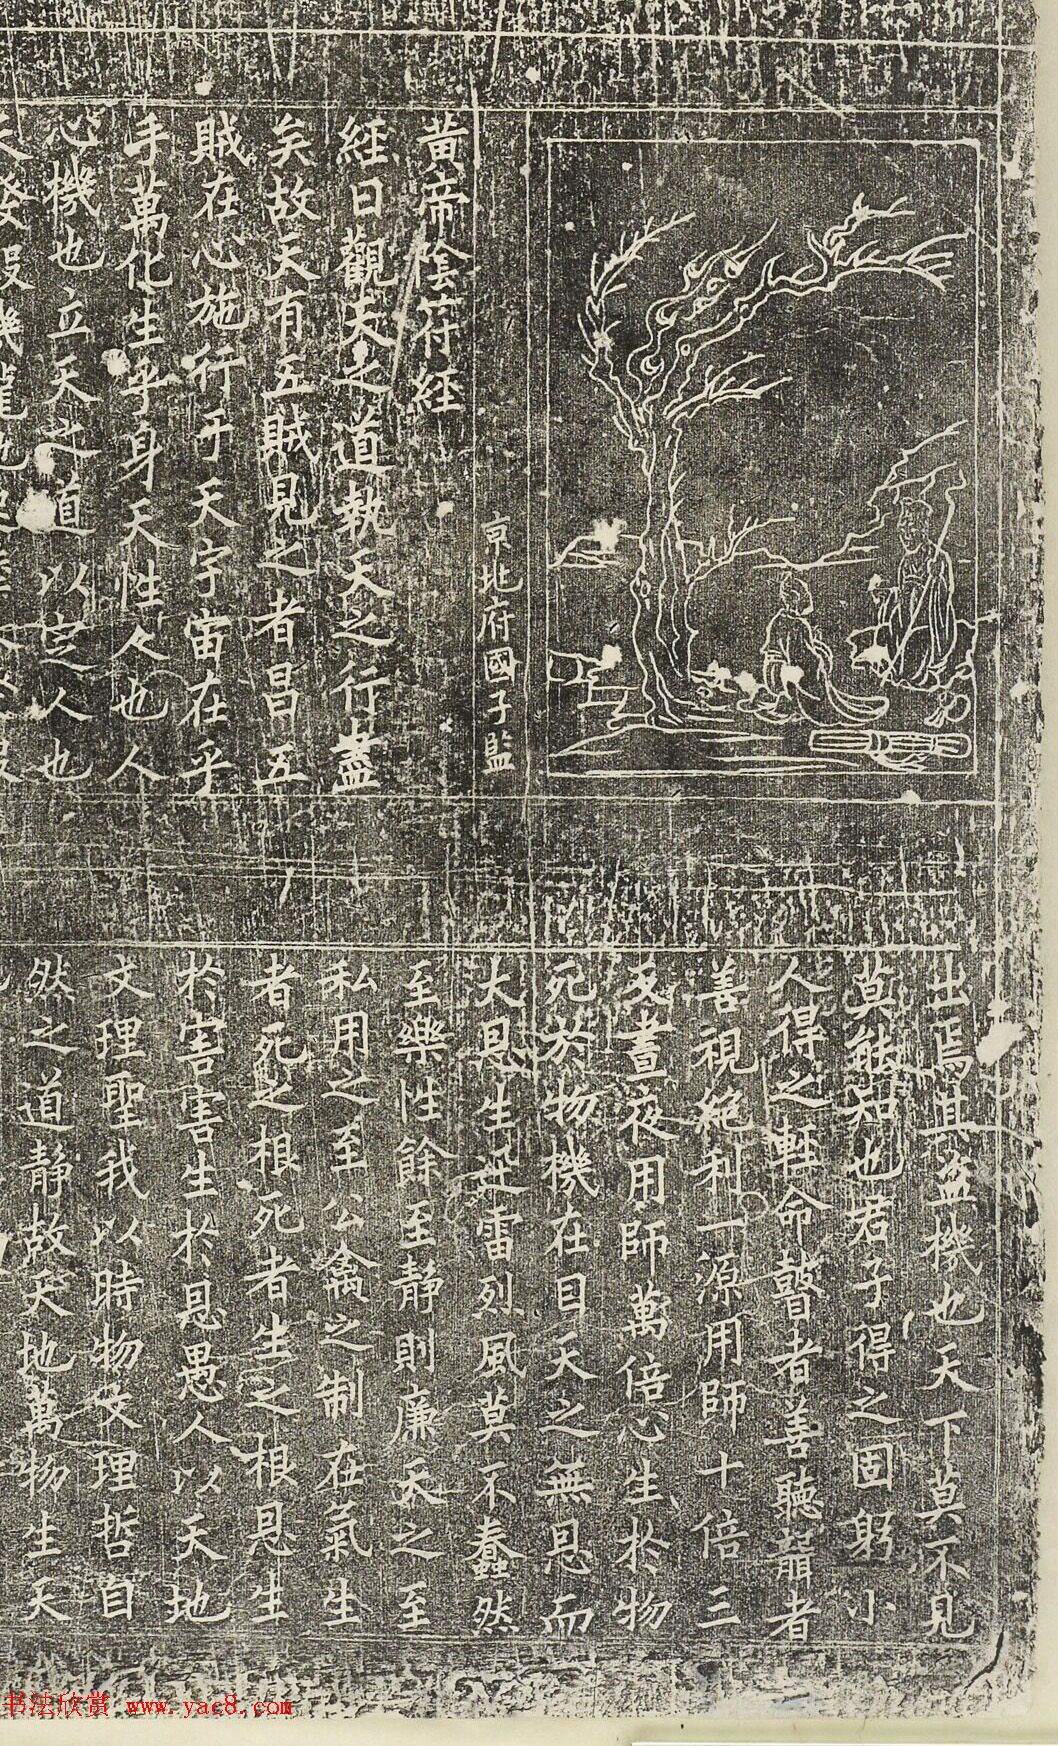 京兆府國子監
黃帝陰符經
經曰觀天之道執天之行盡
矣故天有五賊見之者昌五
賊在心施行于天宇宙在乎
手萬化生乎身天性人也人
心機也立天之道以定人也
出焉其盜機也天下莫不見
莫能知也君子得之固躬小
人得之輕命瞽者善聽聾者
善視絕利一源用師十倍三
反晝夜用師萬倍心生於物
死於物機在目天之無恩而
大恩生迅雷烈風莫不蠢然
至樂性餘至靜則廉天之至
私用之至公禽之制在氣生
者死之根死者生之根恩生
於害害生於恩愚人以天地
文理聖我以時物文理哲自
然之道靜故天地萬物生天
书法欣赏 www.yac8.com